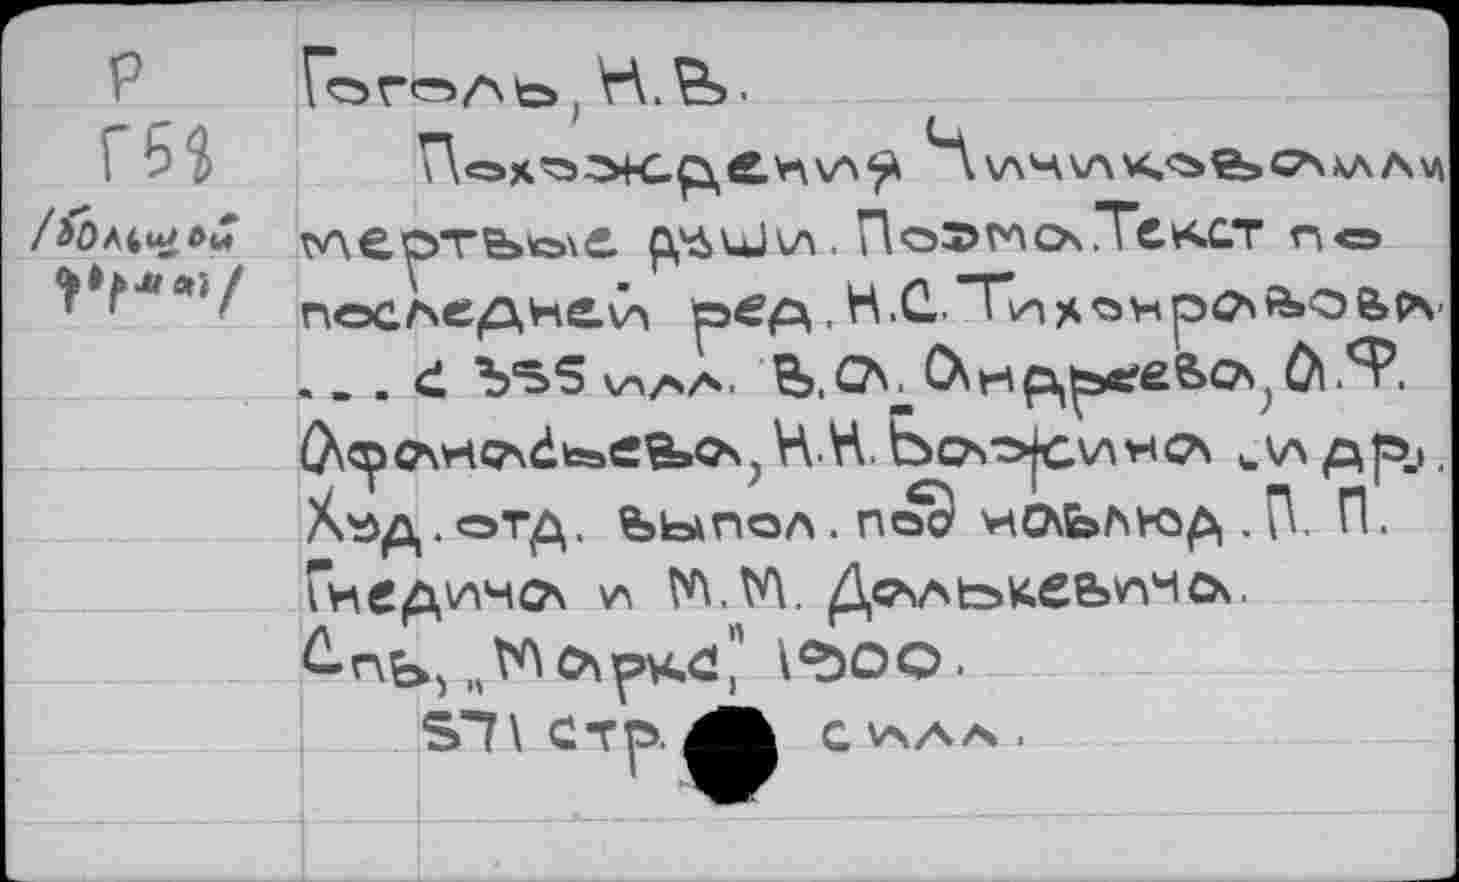 Р
Г58
/большой
формат/
Гоголь, Н.В.
Похождения Чичикова или
мертвые души. Поэма. Текст по
последней ред. Н.С. Тихонравова
... с 355 илл. В.А. Андреева, А.Ф.
Афанасьева, Н.Н. Бажина и др.
Худ. отд. выпол. под наблюд. П. П.
Гнедича и М.М. Далькевича.
Спб, „Маркс", 1900.
571 стр. с илл.